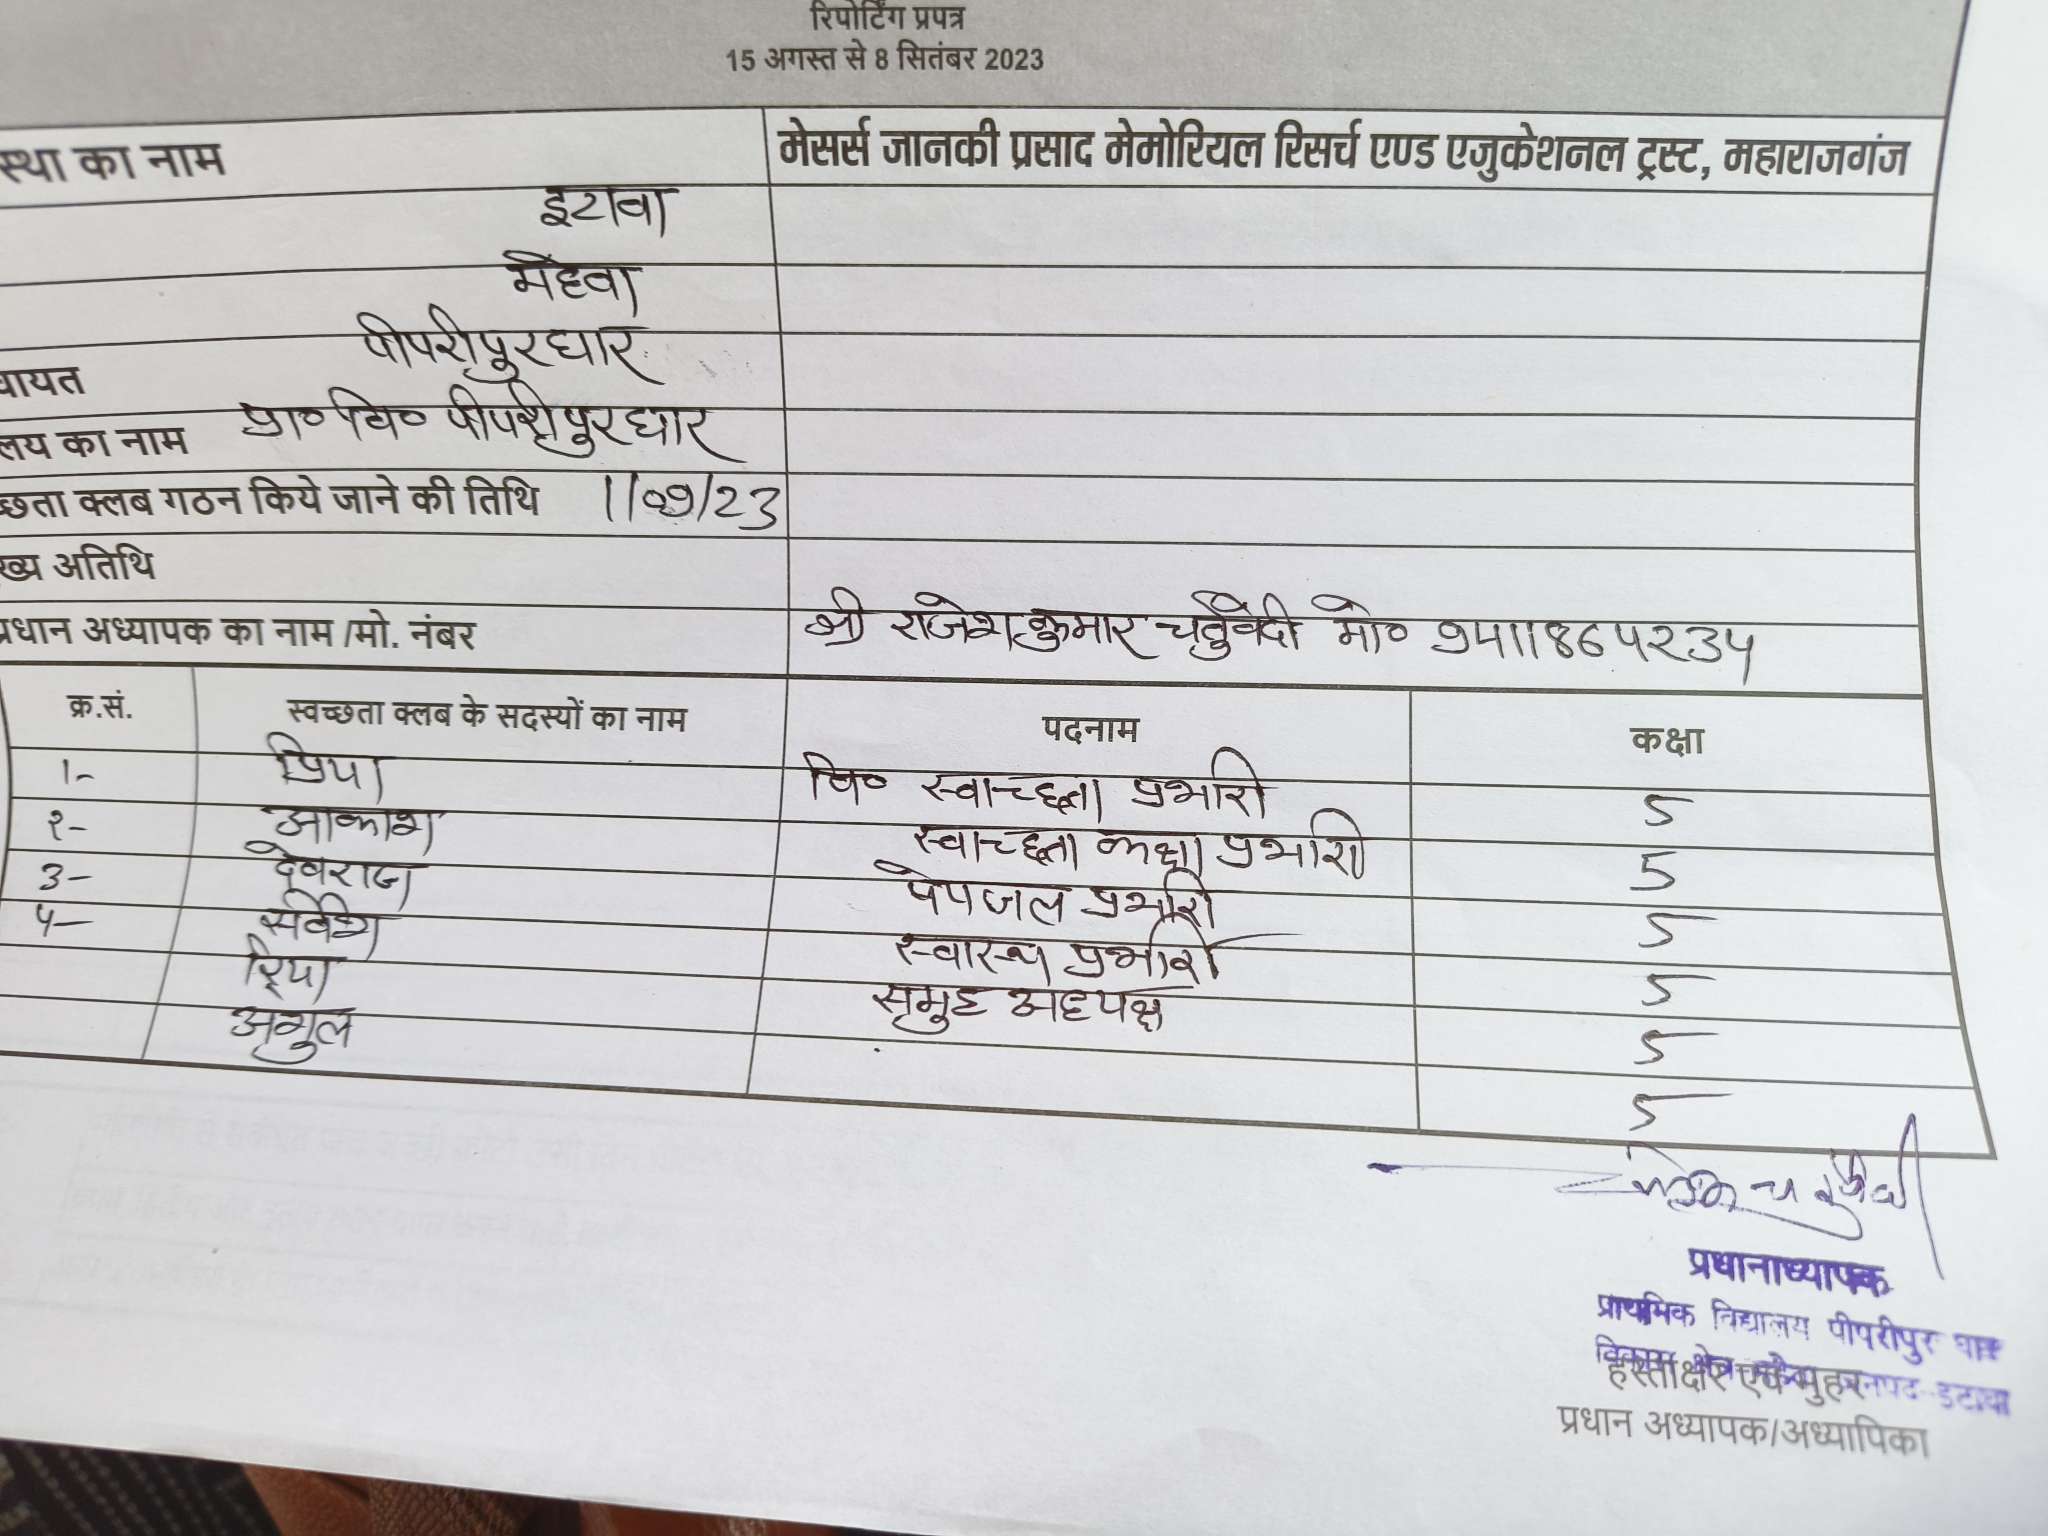 रिपोर्टिंग प्रपत्र
15 अगस्त से 8 सितंबर 2023
स्था का नाम मेसर्स जानकी प्रसाद मेमोरियल रिसर्च एण्ड एजुकेशनल ट्रस्ट, महाराजगंज
इटावा
महेवा
पीपरीपुरघार
चायत
लय का नाम प्रा० वि० पीपरीपुरघार
च्छता क्लब गठन किये जाने की तिथि 1/09/23
ख्य अतिथि
प्रधान अध्यापक का नाम /मो. नंबर श्री राजेश कुमार चतुर्वेदी मो० 9411864234
क्र.सं. स्वच्छता क्लब के सदस्यों का नाम पदनाम कक्षा
1- प्रिया वि० स्वाच्छता प्रभारी 5
२- आकाश स्वाच्छता कक्षा प्रभारी 5
3- देवराज पेयजल प्रभारी 5
५- सर्वेश स्वास्थ्य प्रभारी 5
रिया समुह अध्यक्ष 5
5
प्रधानाध्यापक
प्राथमिक विद्यालय पीपरीपुर घार
विकास क्षेत्र जनपद-इटावा
हस्ताक्षर एवं मुहर
प्रधान अध्यापक/अध्यापिका